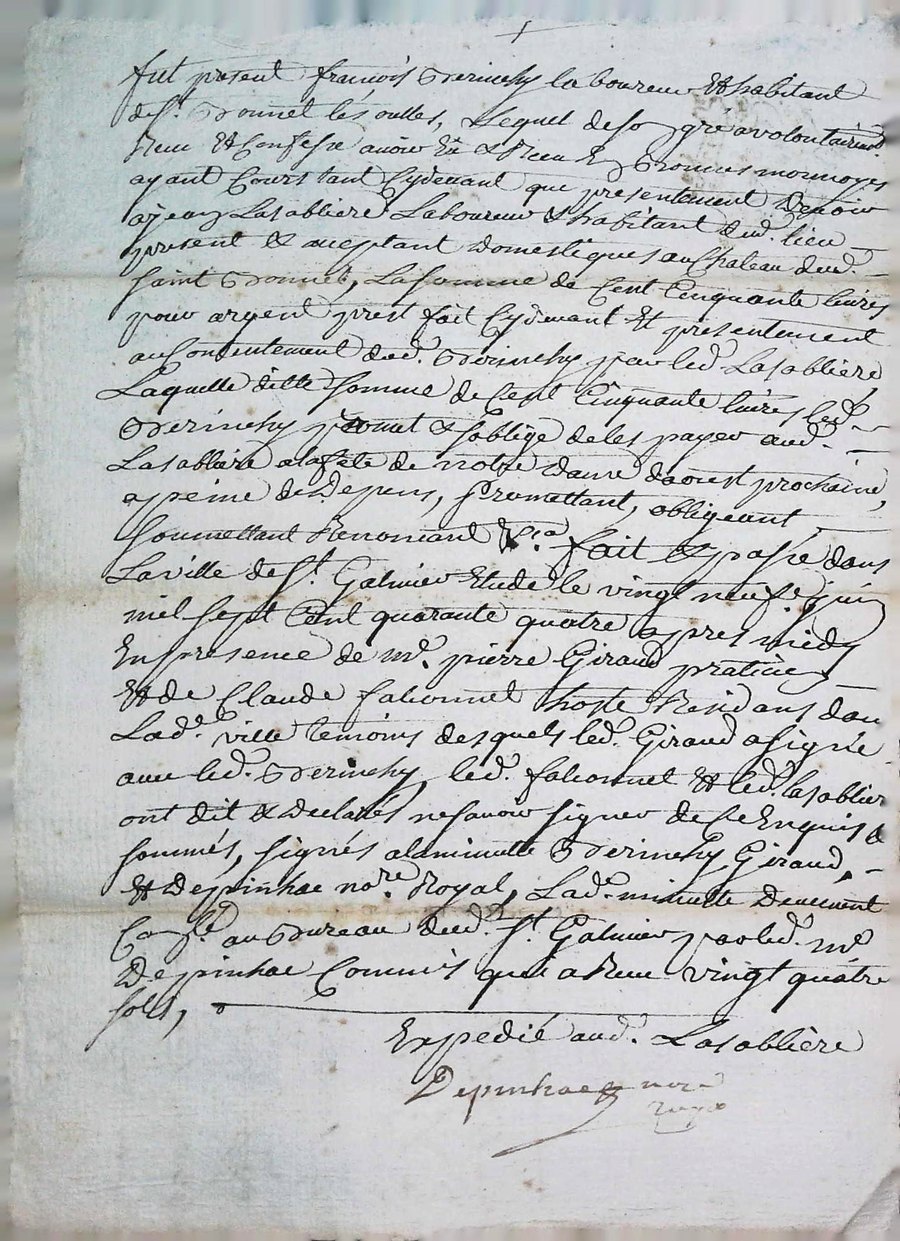 fut present françois Berinchy laboureur & habitant
de St. Bonnet lés oulles, Lequel de son gré a volontairemt.
Reeu & Confesse avoir Eu & Reeu En Bonnes monnoyes
ayant Cours tant Cydevant que presentement Devoir
a jean Lasabliere Laboureur & habitant dud. lieu
present & acceptant Domestiques au Chateau dud.
Saint Bonnet, La somme de Cent Cinquante livres
pour argent prest fait Cydevant Et presentement
au Contentement dud. Berinchy par led. Lasabliere
Laquelle ditte somme de Cent Cinquante livres led.
Berinchy promet & soblige de les payer aud.
Lasabliere a la fete de notre dame daoust prochaine,
a peine de Depens, promettant, obligeant
soumettant Renoncant &ca. fait & passé dans
La ville de St. Galmier Etude le vingt neuf juin
mil sept Cent quarante quatre apres midy
En presence de me. pierre Giraud praticien
& de Claude fahonnel hoste Residans dan
Lad. ville temoins desquels led. Giraud a signé
avec led. Berinchy, led. fahonnel & led. lasablier
ont dit & declarés ne savoir signer de Ce Enquis &
sommés, signés a la minutte Berinchy, Giraud,
& Depinhac nore. Royal, Lad. minutte Deuement
Conlé. au Bureau dud. St. Galmier par led. me
Depinhac Commis qui a Reeu vingt quatre
sols,
Expedié aud. Lasablière
Depinhac nore
royal